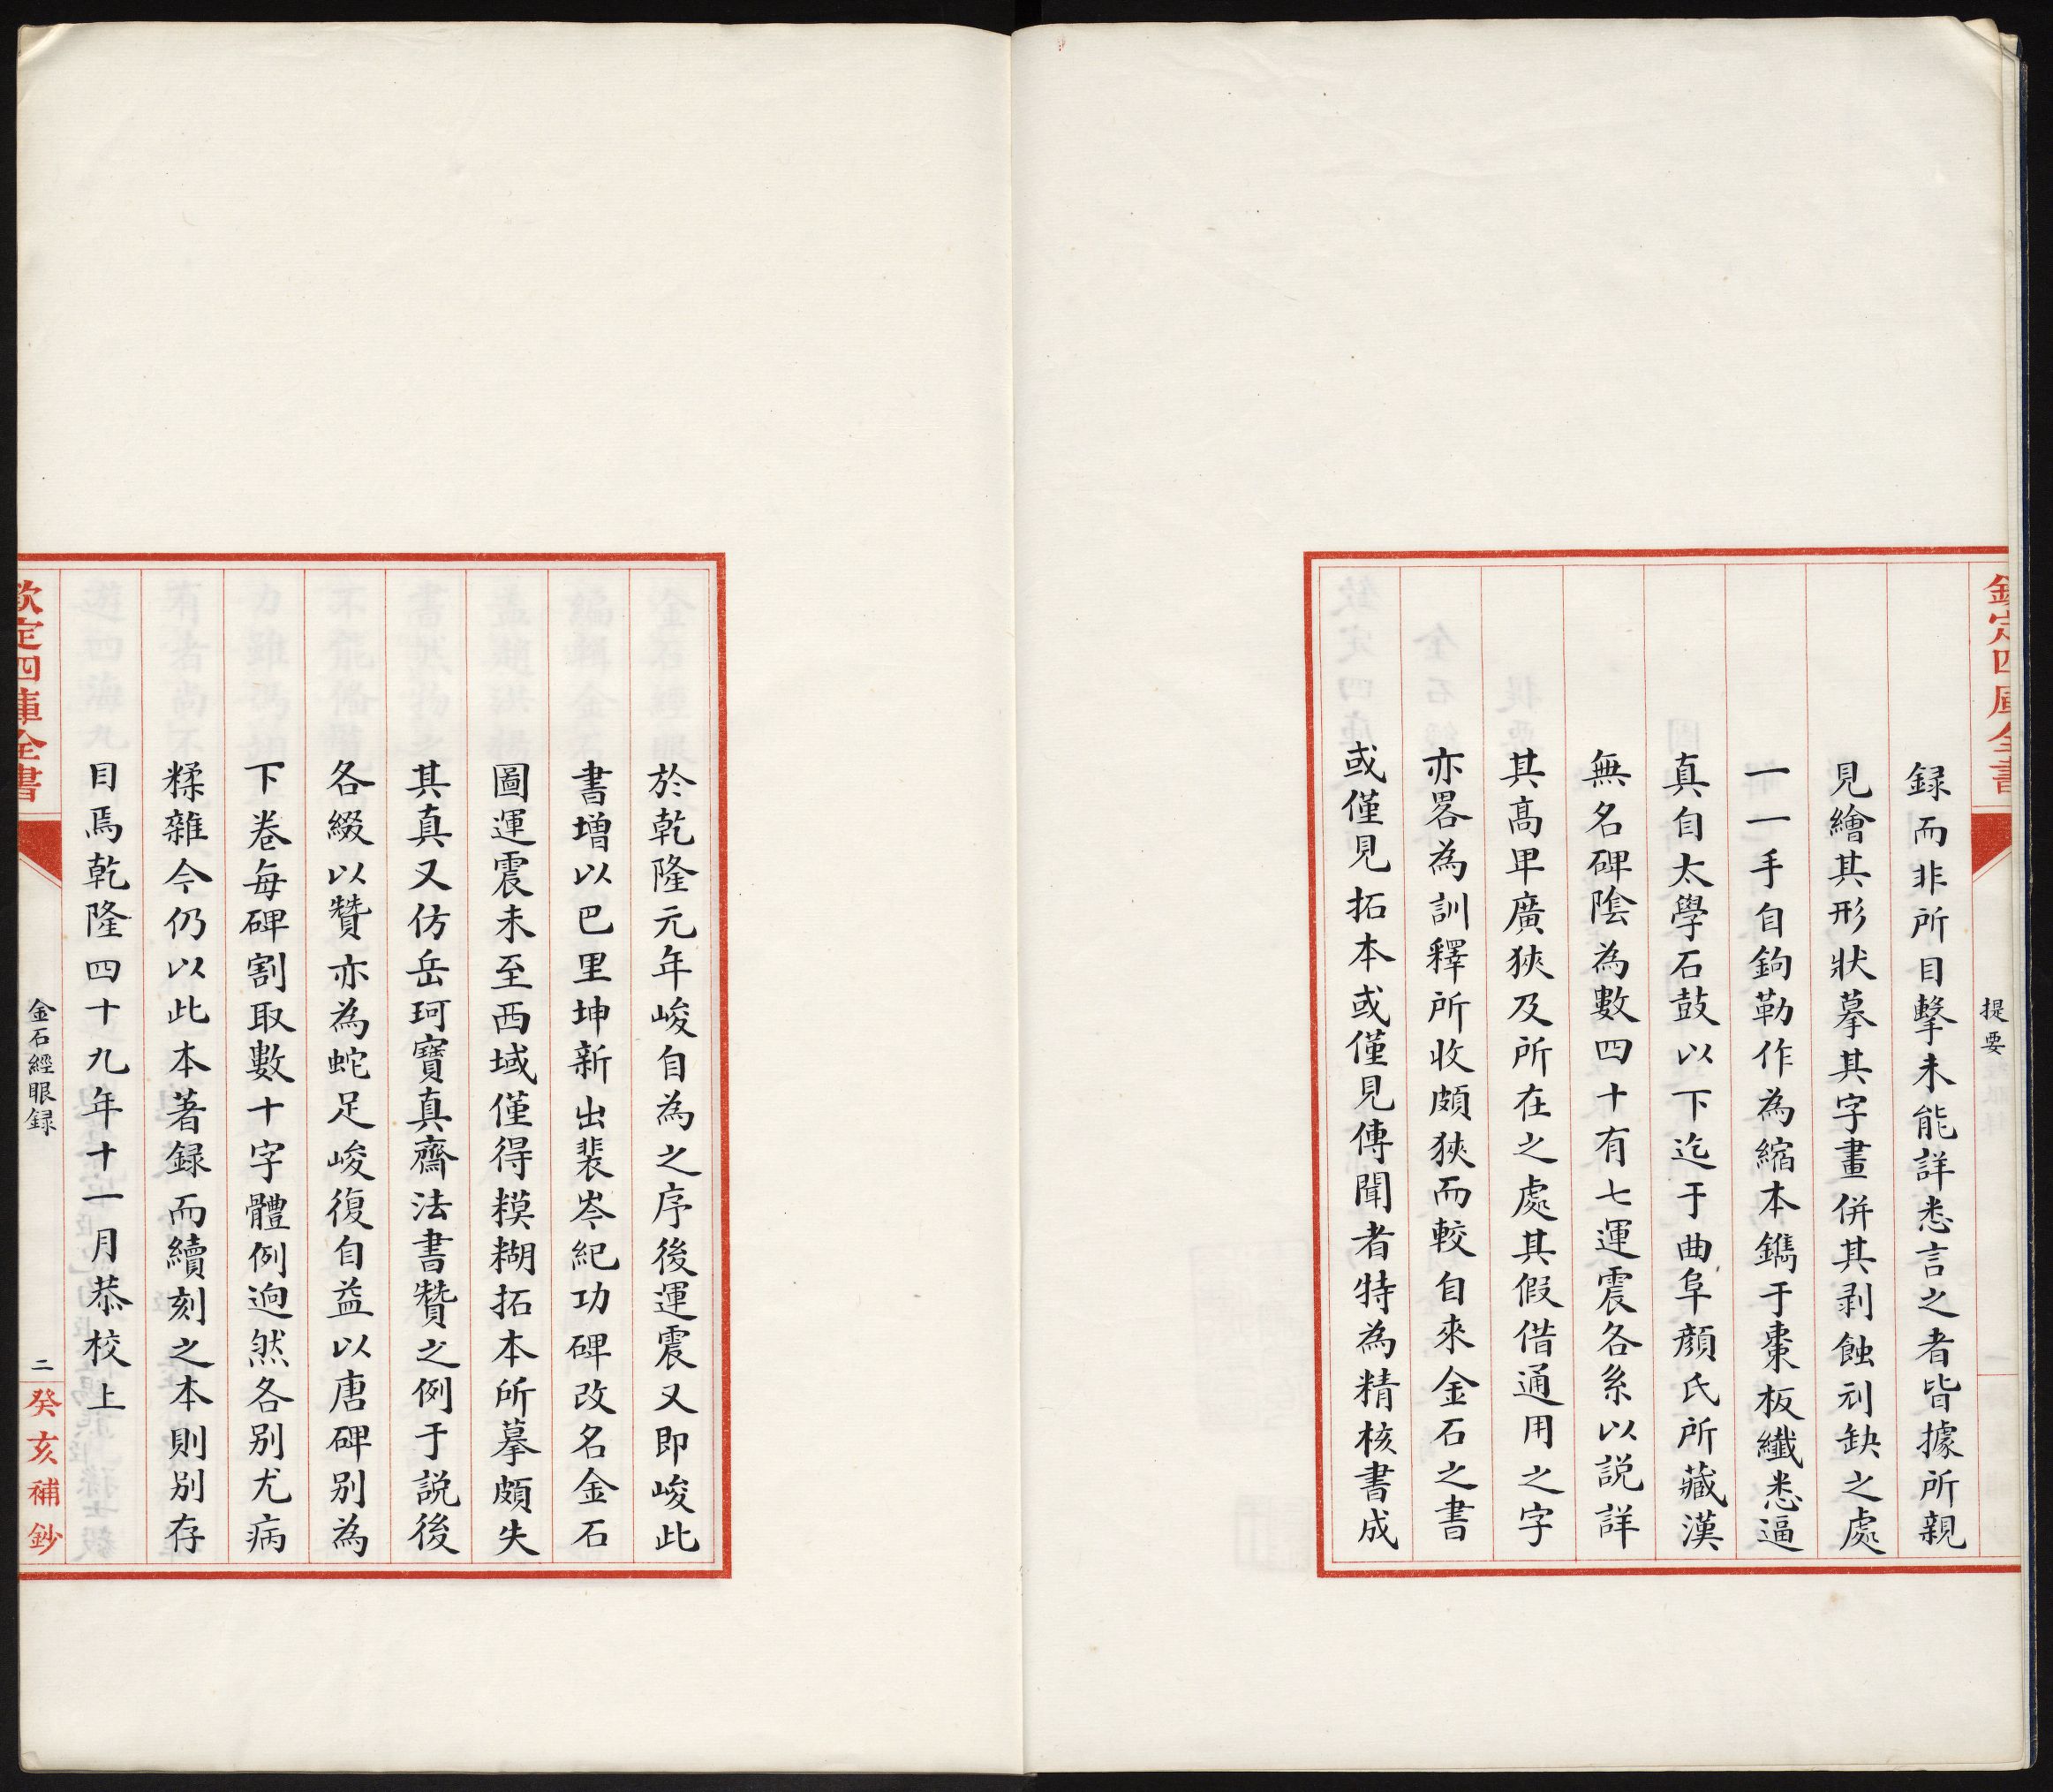 欽定四庫全書
提要
録而非所目擊未能詳悉言之者皆據所親
見繪其形狀摹其字畫併其剥蝕刓缺之處
一一手自鉤勒作為縮本鐫于棗板纖悉逼
真自太學石鼓以下迄于曲阜顔氏所藏漢
無名碑陰為數四十有七運震各系以説詳
其髙卑廣狹及所在之處其假借通用之字
亦畧為訓釋所收頗狹而較自來金石之書
或僅見拓本或僅見傳聞者特為精核書成
於乾隆元年峻自為之序後運震又即峻此
書增以巴里坤新出裴岑紀功碑改名金石
圖運震未至西域僅得糢糊拓本所摹頗失
其真又仿岳珂寶真齋法書贊之例于説後
各綴以贊亦為蛇足峻復自益以唐碑別為
下卷每碑割取數十字體例迥然各別尤病
糅雜今仍以此本著録而續刻之本則別存
目焉乾隆四十九年十一月恭校上
欽定四庫全書
金石經眼録
二
癸亥補鈔